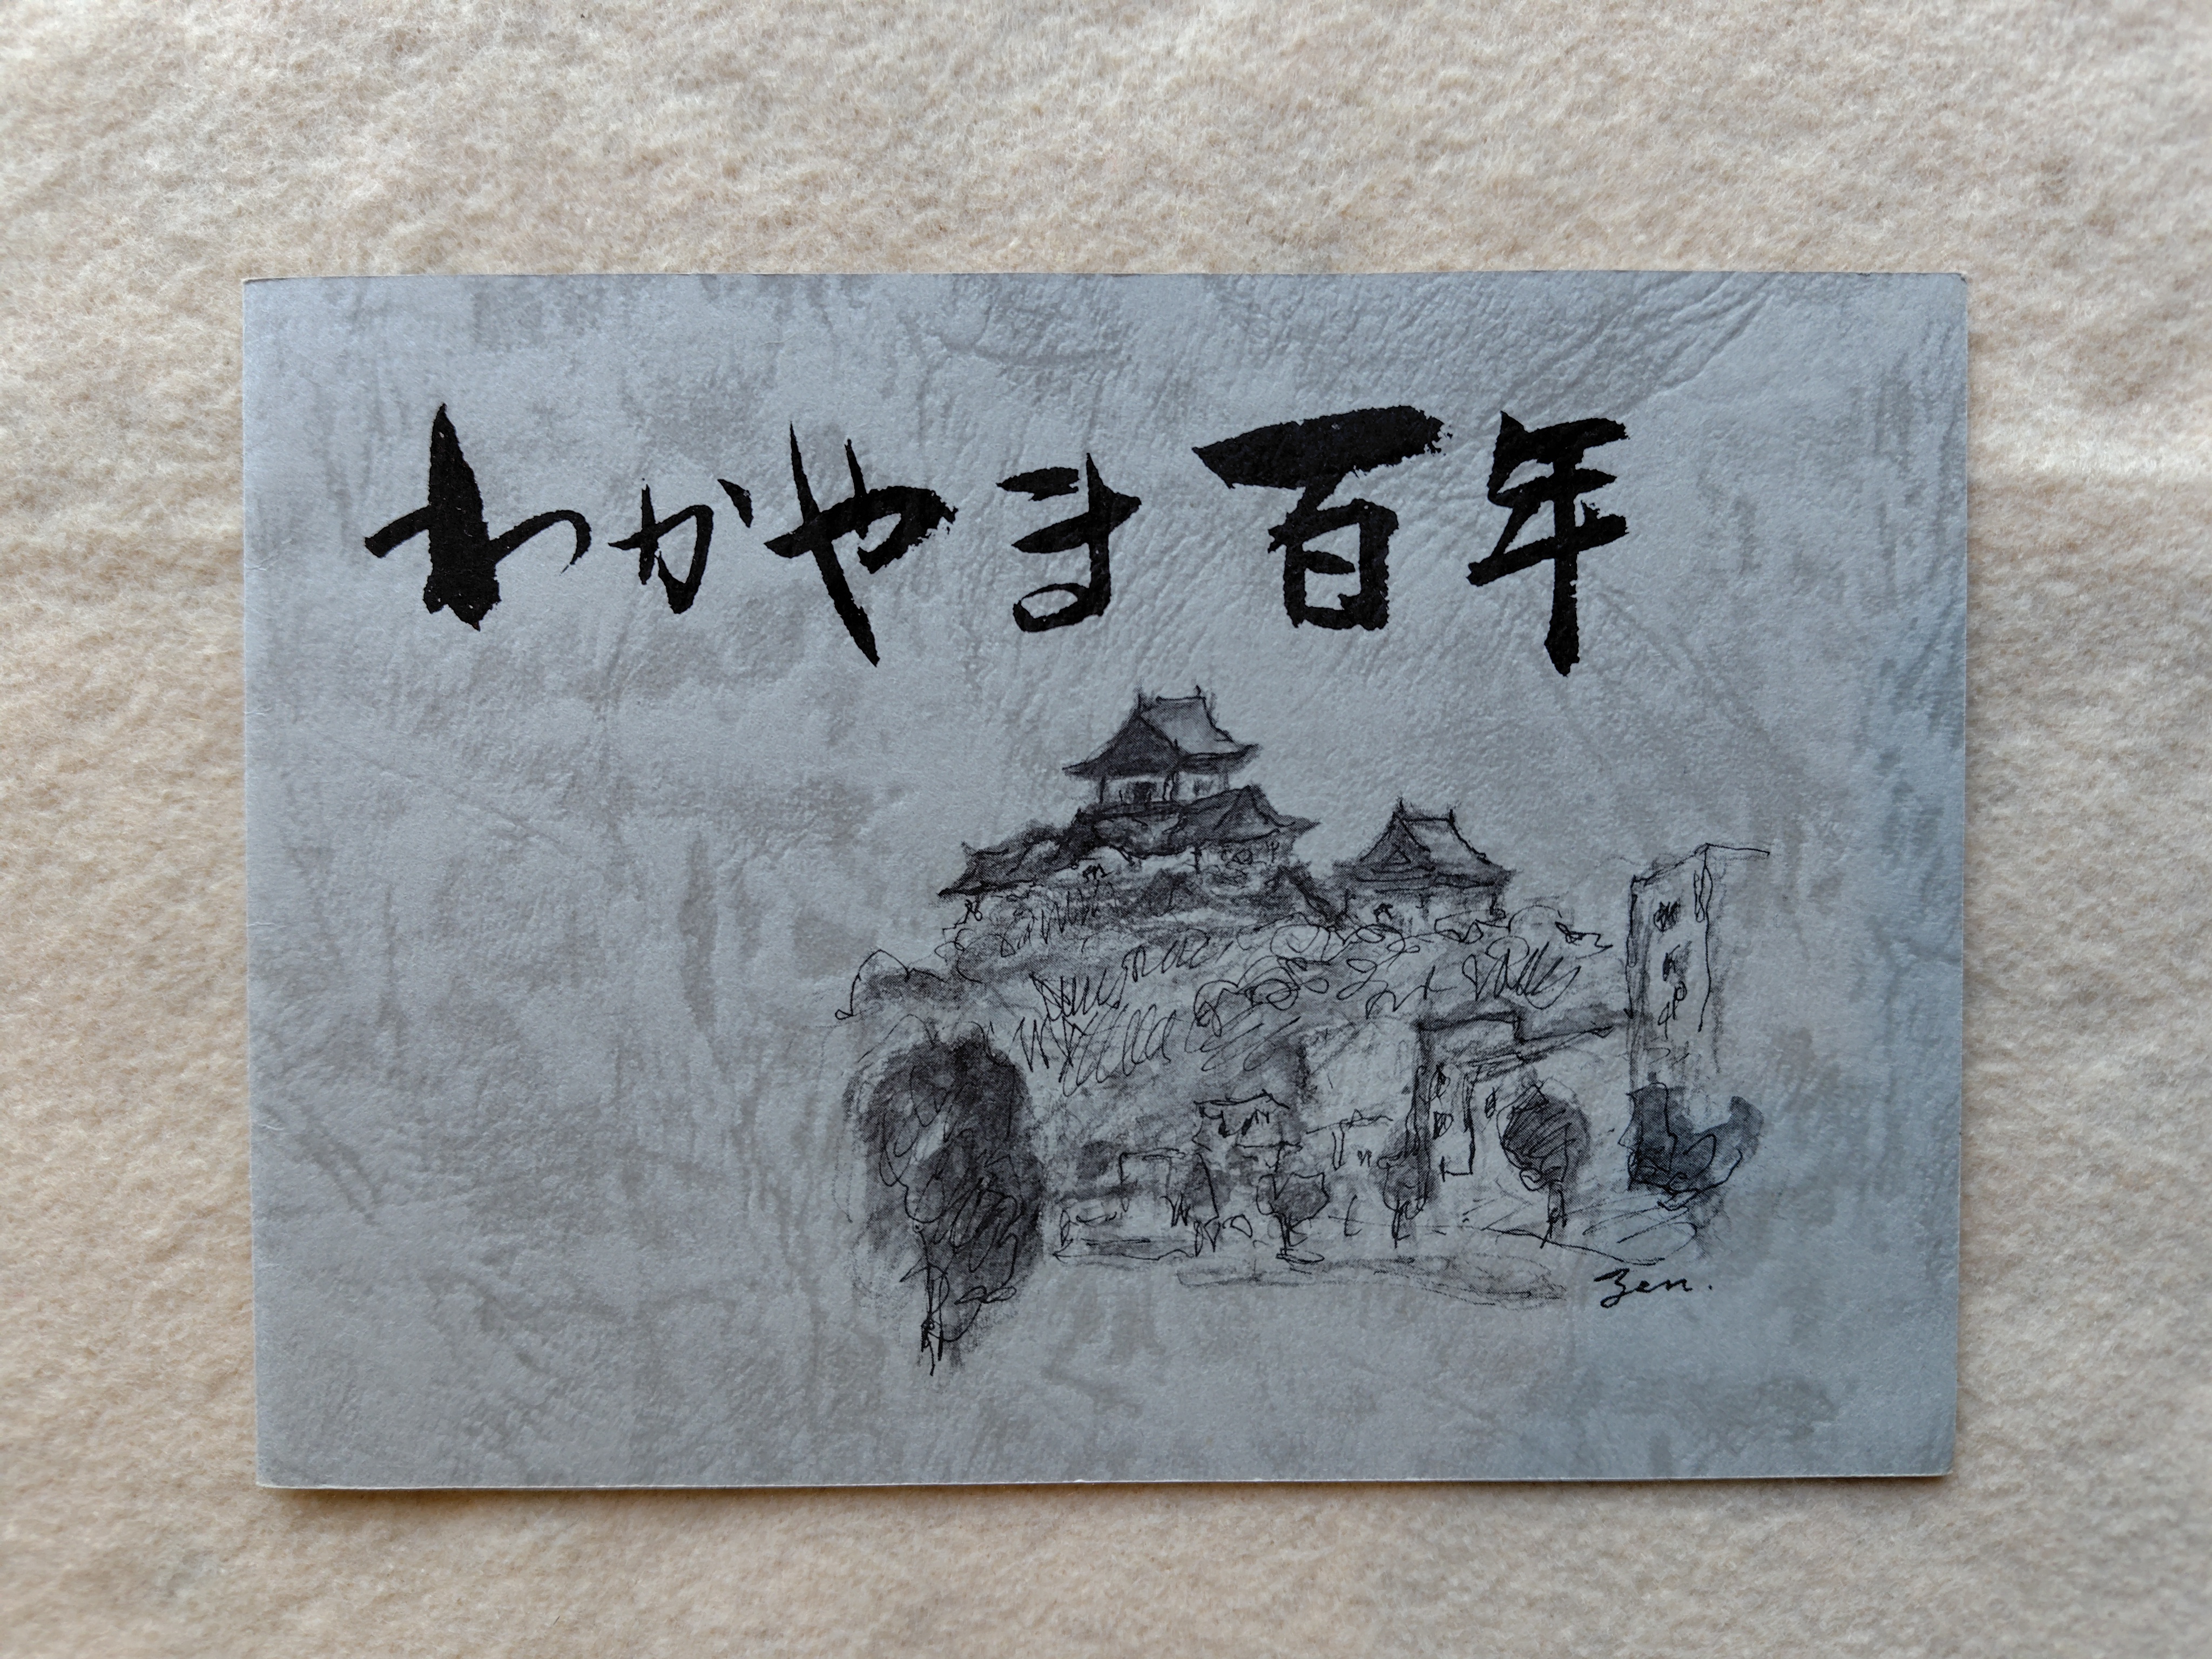 わかやま百年
Zen.